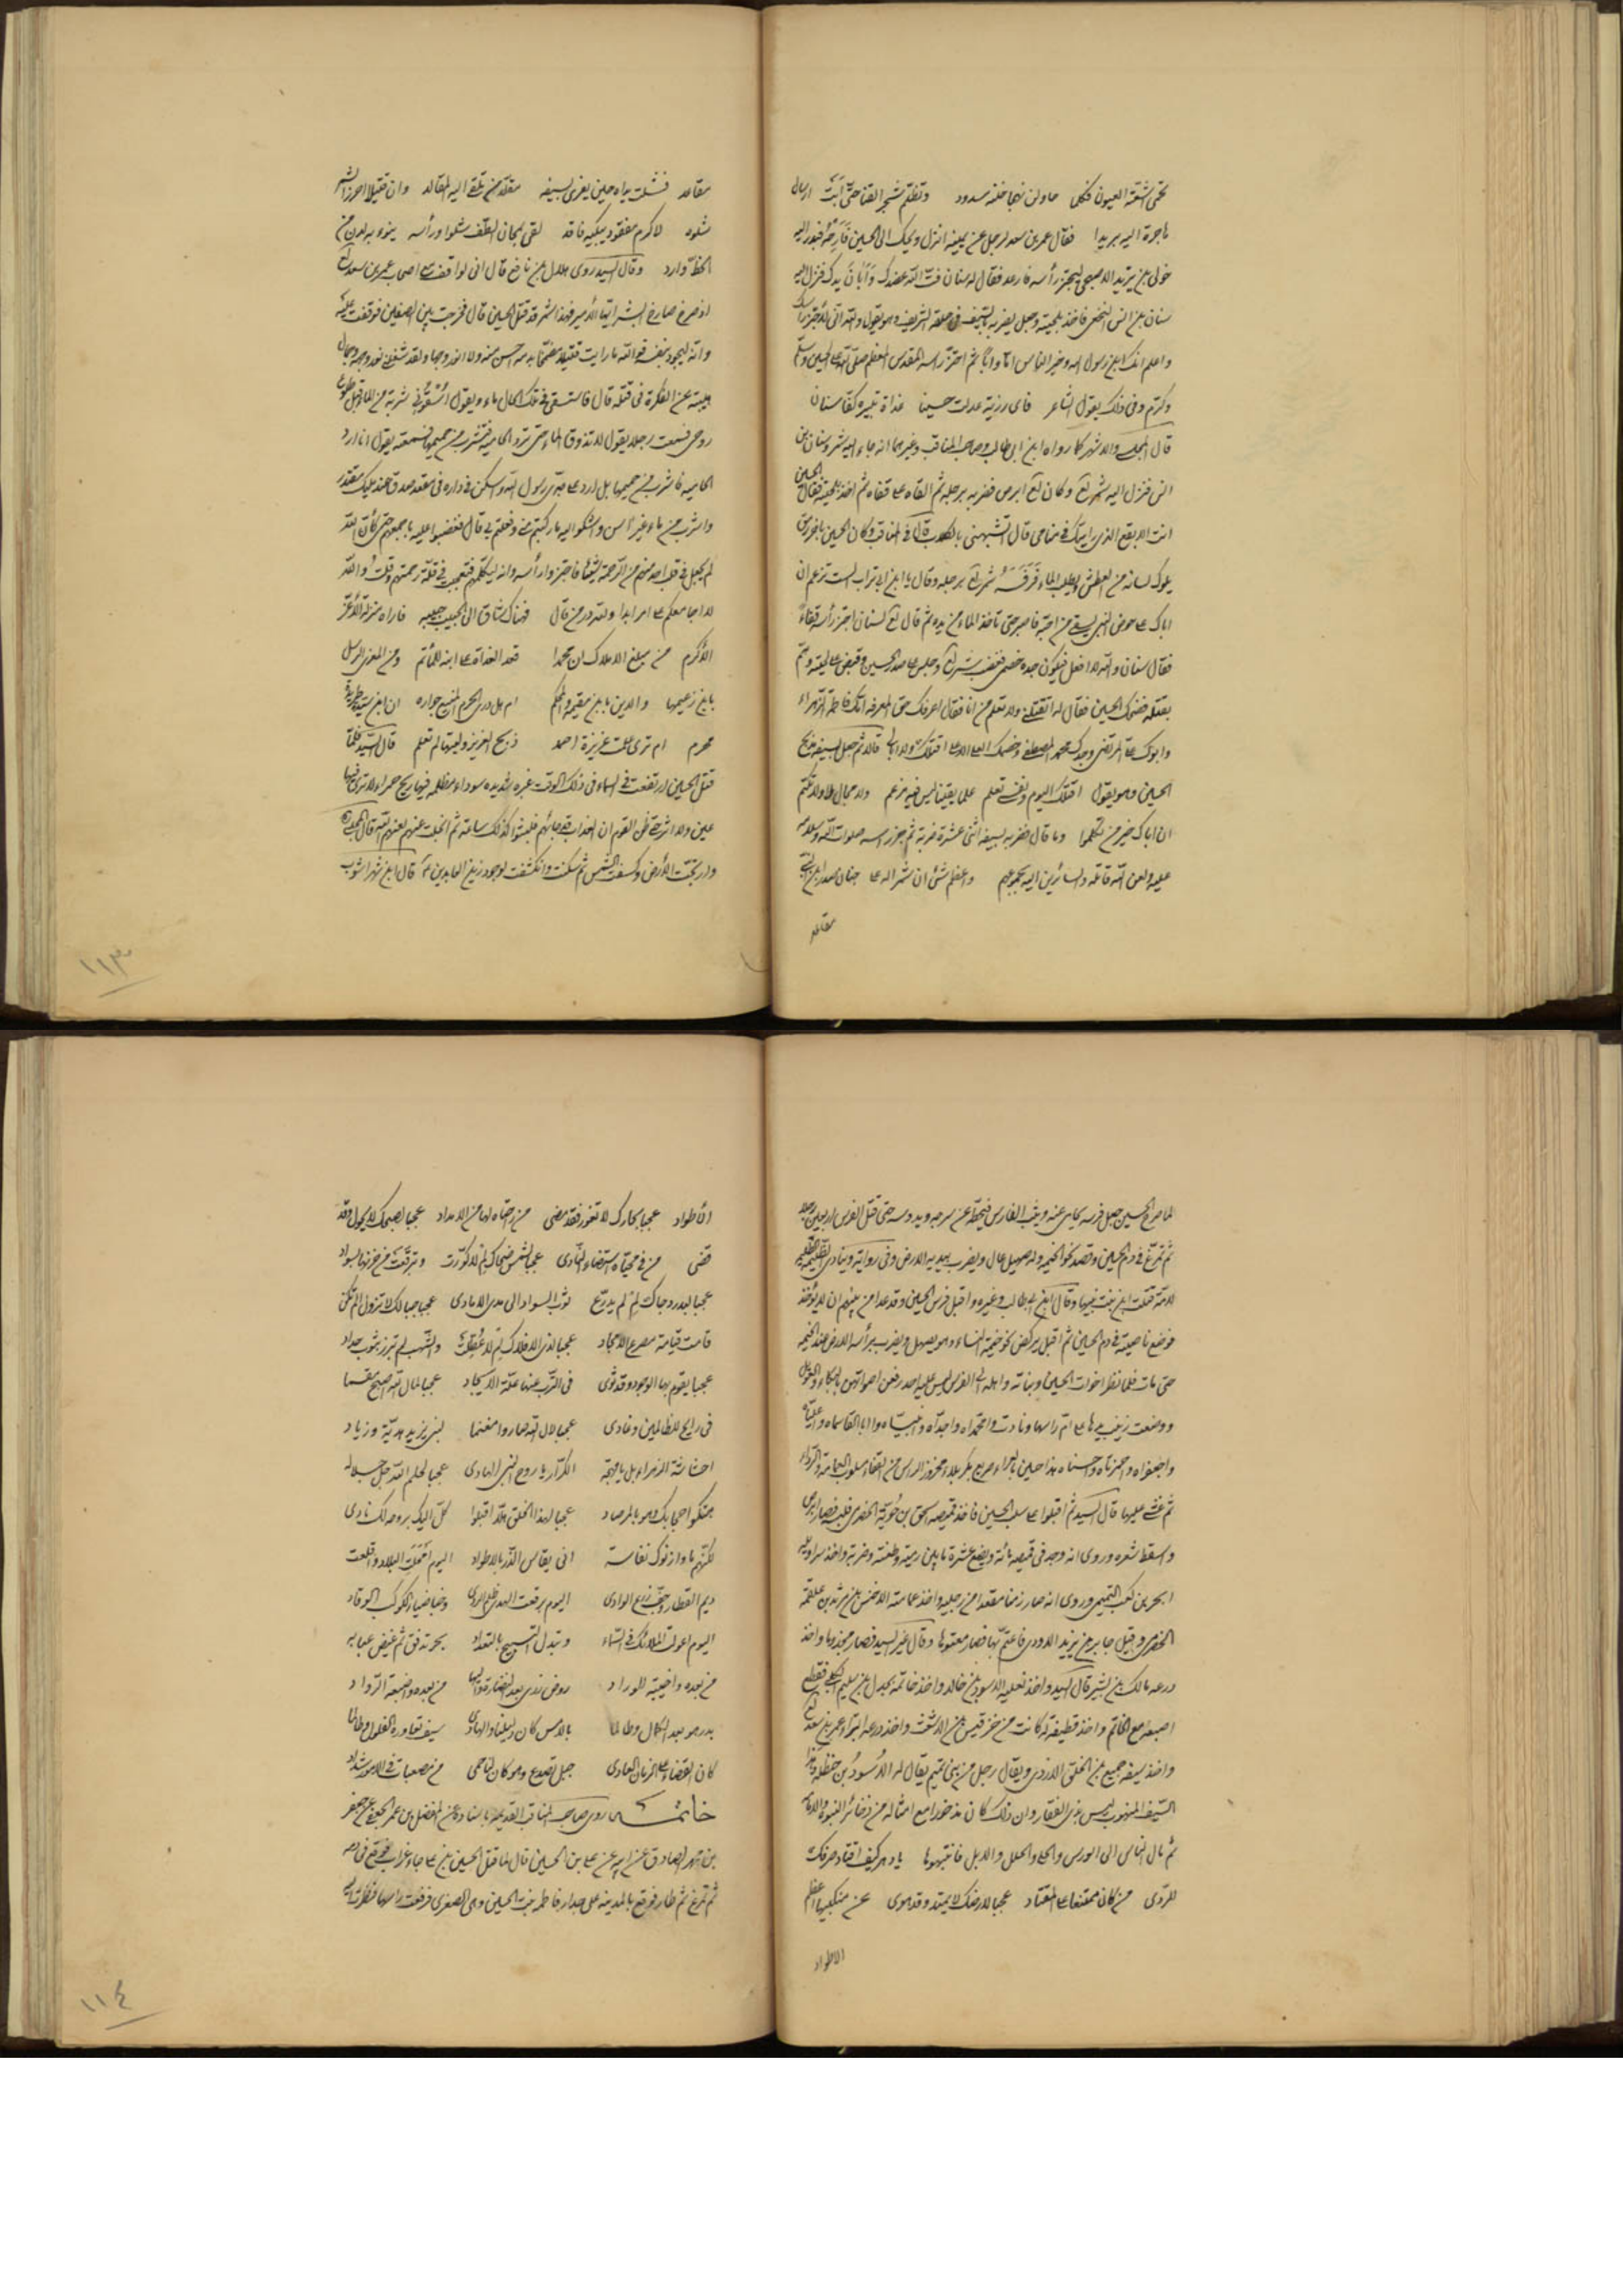 تحمى اشعته العيون فكلما حاولن نهجا خلنه مسدود وتظلّه شجر القنا حتى أبت ارسال
هاجرة اليه بريدا فقال عمر بن سعد لرجل عن يمينه انزل ويحك الى الحسين فأرحه فبدر اليه
خولى بن يزيد الاصبحى ليجتز رأسه فارعد فقال له سنان فتّ الله عضدك وأبان يدك فنزل اليه
سنان بن انس النخعى فاخذ بلحيته وجعل يضربه بالسيف فى حلقه الشريف وهو يقول والله انى لاجتز رأسك
واعلم انك ابن رسول الله وخير الناس امّا وابا ثم اجتز رأسه المقدس المعظم صلى الله على الحسين وسلم
وكرم وفى ذلك يقول الشاعر فاى رزية عدلت حسينا غداة تبيره كفّا سنان
قال المجلسى والاشهر كما رواه ابن ابى طالب وصاحب المناقب وغيرهما انه جاء اليه شمر وسنان بن
انس فنزل اليه شمر لع وكان لع ابرص فضربه برجله ثم القاه على قفاه ثم اخذ بلحيته فقال الحسين
انت الابقع الذى رأيتك فى منامى قال اتشبهنى بالكلاب قال فى المناقب وكان الحسين باخر رمق
يلوك لسانه من العطش ويطلب الماء فرفسه شمر لع برجله وقال يا ابن ابى تراب الست تزعم ان
اباك على حوض النبى يسقى من احبّه فاصبر حتى تاخذ الماء من يده ثم قال لع لسنان اجتز رأسه قفاءً
فقال سنان والله لا افعل فيكون جده خصمى فغضب شمر لع وجلس على صدر الحسين وقبض على لحيته وهمّ
بقتله فضحك الحسين فقال له اتقتلنى ولا تعلم من انا فقال اعرفك حق المعرفه امّك فاطمة الزهراء
وابوك على المرتضى وجدك محمد المصطفى وخصمك العلى الاعلى اقتلك ولا ابالى قال ثم جعل بسيفه يذبح
الحسين وهو يقول اقتلك اليوم ونفسى تعلم علما يقينا ليس فيه مزعم ولا مجال لا ولا تكتم
ان اباك خير من تكلما وما قال فضربه بسيفه اثنى عشرة ضربة ثم جز رأسه صلوات الله وسلامه
عليه ولعن الله قاتله والسائرين اليه بجموعهم واعظم شئ ان شمرا له على جنان صدر ابن النبى
مقاعد
مقاعد فشلت يداه حين يفرى بسيفه مقلد من تلقى اليه المقالد وان قتيلا احرز الشمر
شلوه لاكرم مفقود يبكيه فاقد لقى بمحانى الطف شلوا ورأسه ينوء به لدن من
الخطّ وارد وقال السيد روى هلال بن نافع قال انى لواقف مع اصحاب عمر بن سعد لع
اذ صرخ صارخ ابشر ايها الأمير فهذا شمر قد قتل الحسين قال فخرجت بين الصفين فوقفت عليه
وانّه ليجود بنفسه فوالله ما رايت قتيلا مضمّخا بدمه احسن منه ولا انور وجها ولقد شغلنى نور وجهه وجمال
هيبته عن الفكرة فى قتله قال فاستسقى فى تلك الحال ماء ويقول اسقونى شربة من الماء قبل طلوع
روحى فسمعت رجلا يقول لا تذوق الماء حتى ترد الحاميه فتشرب من حميمها فسمعته يقول انا ارد
الحاميه فاشرب من حميمها بل ارد على جدّى رسول الله واسكن فى داره فى مقعد صدق عند مليك مقتدر
واشرب من ماء غير اسن واشكو اليه ما ركبتم منى وفعلتم بى قال فغضبوا عليه باجمعهم حتى كأنّ الله
لم يجعل فى قلب احد منهم من الرحمة شيئا فاجتزوا رأسه وانه ليكلّمهم فتعجبت فى قلّة رحمتهم وقلت والله
لا اجامعكم على امر ابدا ولله در من قال فهناك شتاق الى الحبيب حبيبه فاراه منزله الأعز
الأكرم من مبلغ الاملاك ان محمدا قعد الغداة على ابنه للمأتم ومن المعزى الرسل
بابن زعيمها والدين بابن مقيمه والمحكم ام هل درى الحرم المنيع جواره ان ابن سيده طريدة
محرم ام ترى علمت عزيزة احمد ذبح العزيز وليتها لم تعلم قال السيد فلمّا
قتل الحسين ارتفعت فى السماء فى ذلك الوقت غبره شديده سوداء مظلمه فيها ريح حمراء لا ترى فيها
عين ولا اثر حتى ظن القوم ان العذاب قد جائهم فلبثوا كذلك ساعة ثم انجلت عنهم لعنهم الله قال المجلسى
وارتجّت الأرض وكسفت الشمس ثم سكنت وانكشفت لوجود زين العابدين ع قال ابن شهراشوب
١١٣
لما صرع الحسين جعل فرسه يحامى عنه ويثب على الفارس فيخطه عن سرجه ويدوسه حتى قتل الفرس اربعين رجلا
ثم تمرّغ فى دم الحسين وقصد نحو الخيمه وله صهيل عال ويضرب بيديه الارض وفى رواية وينادى الظليمه الظليمه
لامّة قتلت ابن بنت نبيها وقال ابن ابيطالب وغيره واقبل فرس الحسين وقد عدا من بين ايديهم ان لا يؤخذ
فوضع ناصيته فى دم الحسين ثم اقبل يركض نحو خيمة النساء وهو يصهل ويضرب برأسه الارض عند الخيمه
حتى مات فلما نظر اخوات الحسين وبناته واهله الى الفرس ليس عليه احد رفعن اصواتهن بالبكاء والعويل
ووضعت زينب يدها على امّ راسها ونادت وامحمّداه واجدّاه وانبيّاه واابا القاسماه واعليّاه
واجعفراه واحمزتاه واحسناه هذا حسين بالعراء صريع بكربلاء محزوز الراس من القفاء مسلوب العمامة والرّداء
ثم غشى عليها قال السيد ثم اقبلوا على سلب الحسين فاخذ قميصه اسحق بن حُويّة الحضرمى فلبسه فصار ابرص
واسقط شعره وروى انه وجد فى قميصه مائة وبضع عشرة ما بين رمية وطعنة وضربة واخذ سراويله
ابجر بن كعب التيمى وروى انه صار زمنا مقعدا من رجليه واخذ عمامته الاخنس بن مرثد بن علقمة
الحضرمى وقيل جابر بن يزيد الاودى فاعتم بها فصار معتوها وقال غير السيد فصار مجذوما واخذ
درعه مالك بن بشير قال السيد واخذ نعليه الاسود بن خالد واخذ خاتمه بجدل بن سليم الكلبى فقطع
اصبعه مع الخاتم واخذ قطيفة له كانت من خز قيس بن الاشعث واخذ درعه البتراء عمر بن سعد لع
واخذ سيفه جميع بن الخلق الازدى ويقال رجل من بنى تميم يقال له الأسود بن حنظله وهذا
السيف المنهوب ليس بذى الفقار وان ذلك كان مذخورا مع امثاله من ذخائر النبوة والامامة
ثم مال الناس الى الورس والحلى والحلل والابل فانتهبوها يا دهر كيف اقتاد صرفك
للردى من كان ممتنعا على المقتاد عجبا لارضك لا يميد وقد هوى عن منكبيها اعظم
الاطواد
الأطواد عجبا بحارك لا تغور فقد مضى من راحتاه لها من الامداد عجبا لصبحك لا يحول وقد
قضى من فى محيّاه استضاء النّادى عجبا لشمس ضحاك لم لا كوّرت وتبرقعت من حزنها بسواد
عجبا لبدر دجاك لم لم يدّرع ثوب السواد الى مدى الابادى عجبا جبالك لا تزول الم تكن
قامت قيامة مصرع الامجاد عجبا لذى الافلاك لم لا عُطّلت والشهب لم تبرز بثوب حداد
عجبا يقوم بها الوجود وقد ثوى فى الترب عنها علّة الايجاد عجبا لمال الله اصبح مقسما
فى رايح للظالمين وغادى عجبا لآل الله صاروا مغنما لبنى يزيد هديّة وزياد
احشاشة الزهراء بل يا مهجة الكرّار يا روح النبى الهادى عجبا لحلم الله جل جلاله
هتكوا حجابك وهو بالمرصاد عجبا لهذا الخلق هلّا اقبلوا كلّ اليك بروحه لك فادى
لكنهم ما وازنوك نفاسة انى يقاس الذرّ بالاطواد اليوم أمحلت البلاد واقلعت
ديم القطار وجفّ زرع الوادى اليوم برقعت الهدى ظلم الردى وخبا ضياء الكوكب الوقاد
اليوم اعولت الملائك فى السّماء وتبدل التسبيح بالتعداد بحر تدفق ثم غيض عبابه
من بعده واخيبة الوراد روض ذوى بعد النضارة والبها من بعده واضيعة الروّاد
بدر هوى بعد الكمال وطالما بالامس كان دليلنا والهادى سيف تعاوره الفلول وطالما
كان القضاء على الزمان العادى جبل تصدع وهو كان لنا حمى من مصعبات فى الامور شداد
خاتمة روى صاحب المناقب القديم باسناده عن المفضل بن عمر الجعفى عن جعفر
بن محمد الصادق عن ابيه عن على بن الحسين قال لما قتل الحسين بن على جاء غراب فوقع فى دمه
ثم تمرغ ثم طار فوقع بالمدينه على جدار فاطمه بنت الحسين وهى الصغرى فرفعت راسها فنظرت اليه
١١٤